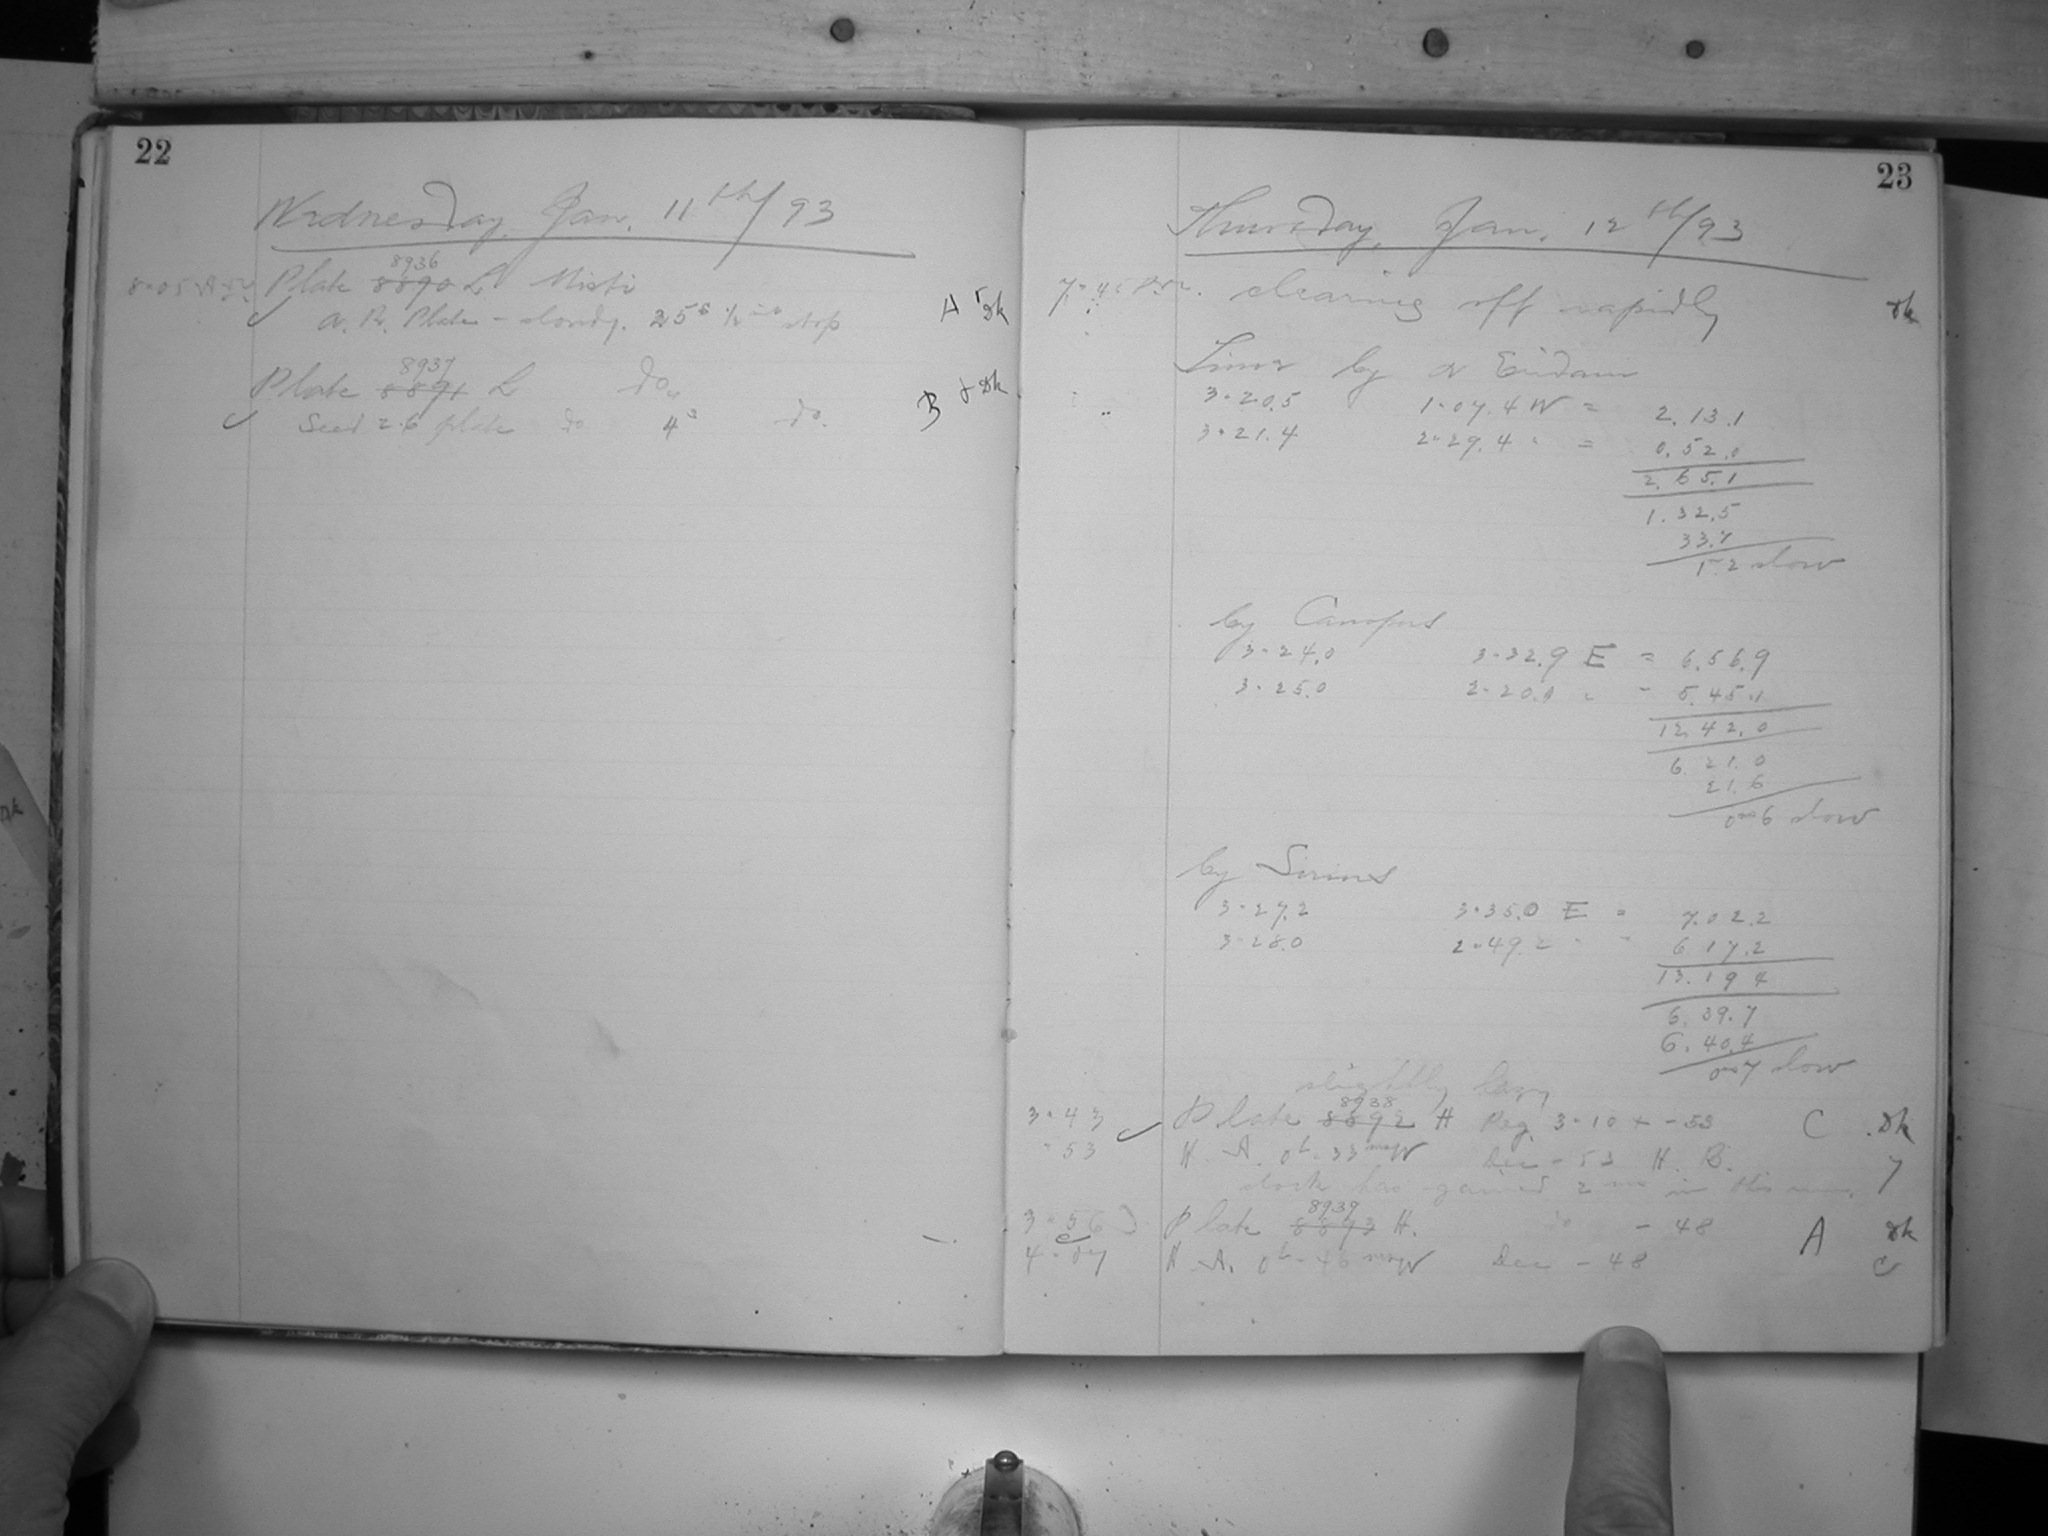 22
Wednesday, Jan. 11th/93
8936
Plate 8890 L Misti
Plate - cloudy. 25s 1/2 in stop
A Dk
8937
Plate 8891 L do.
Seed 26 plate do 4s do.
B Dk
23
Thursday, Jan. 12th/93
clearing off rapidly
Dk
Time by α Eridani
3-20.5 1-07.4 W = 2.13.1
3-21.4 2-29.4 " = 0.52.0
2.65.1
1.32.5
33.7
1.2 slow
by Canopus
3-24.0 3-32.9 E = 6.56.9
3-25.0 2-20.1 " - 5.45.1
12.42.0
6 21.0
21.6
0m6 slow
by Sirius
3-27.2 3-35.0 E = 7.02.2
3-28.0 2-49.2 " " 6 17.2
13.19 4
6.39.7
6.40.4
0m7 slow
slightly hazy
8938
3-43 Plate 8892 H Reg. 3-10 + -53 C Dk
-53 H. A. 0h-33m W Dec -53 H. B. 7
clock has gained 2m in this
8939
3-56 Plate 8893 H. do -48 A Dk
4-07 H. A. 0h-46m W Dec -48 C